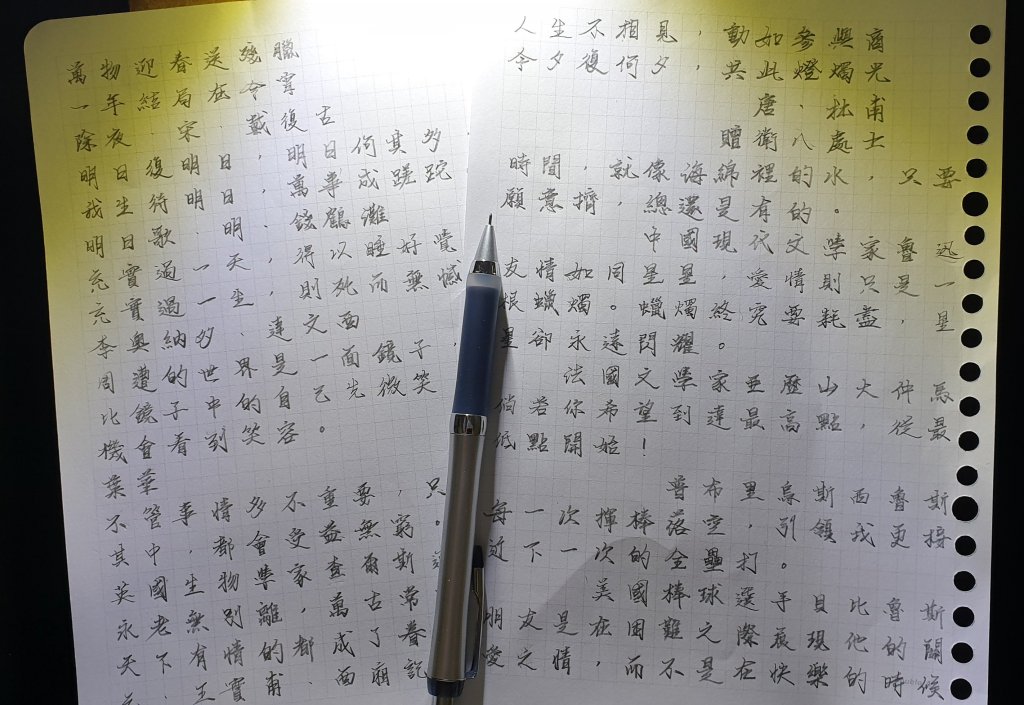 萬物迎春送殘臘
一年結局在今宵
除夜．宋．戴復古
明日復明日，明日何其多
我生待明日，萬事成蹉跎
明日歌．明．錢鶴灘
充實過一天，得以睡好覺
充實過一生，則死而無憾
李奧納多．達文西
周遭的世界是一面鏡子，
比鏡子中的自己先微笑
機會看到笑容。
葉華
不管事情多不重要，只
其中，都會受益無窮。
英國生物學家查爾斯
永老無別離，萬古常
天下有情的都成了眷
元．王實甫．西廂記
人生不相見，動如參與商
今夕復何夕，共此燈燭光
唐．杜甫
贈衛八處士
時間，就像海綿裡的水，只要
願意擠，總還是有的。
中國現代文學家魯迅
友情如同星星，愛情則只是一
根蠟燭。蠟燭終究要耗盡，星
星卻永遠閃耀。
法國文學家亞歷山大仲馬
倘若你希望到達最高點，從最
低點開始！
普布里烏斯西魯斯
每一次揮棒落空，引領我更接
近下一次的全壘打。
美國棒球選手貝比魯斯
朋友是在困難之際表現他的關
愛之情，而不是在快樂的時候